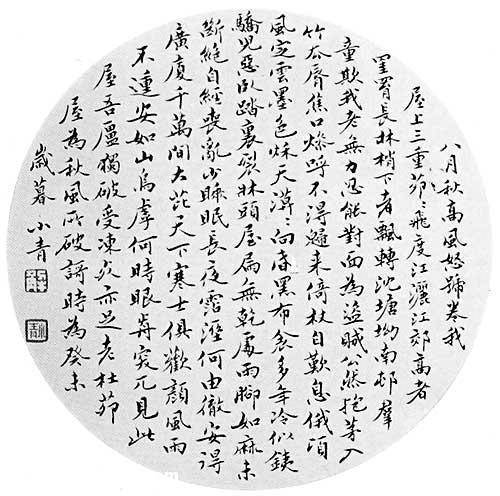 八月秋高風怒號卷我
屋上三重茆々飛度江灑江郊高者
罣罥長林梢下者飄轉沈塘坳南邨羣
童欺我老無力忍能對面為盜賊公然抱茅入
竹去脣焦口燥呼不得歸來倚杖自歎息俄頃
風定雲墨色秋天漠々向昏黑布衾多年冷似鐵
驕兒惡臥踏裏裂牀頭屋扃無乾處雨腳如麻未
斷絕自經喪亂少睡眠長夜霑溼何由徹安得
廣廈千萬間大芘天下寒士俱歡顏風雨
不動安如山烏虖何時眼前突兀見此
屋吾廬獨破受凍死亦足老杜茆
屋為秋風所破謌時為癸未
歲暮 小青